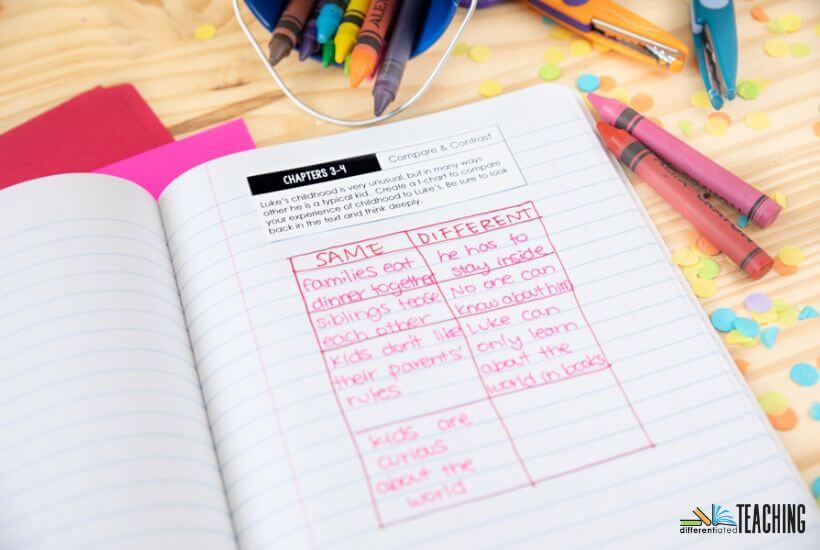 ALEX
CHAPTERS 3-4
Compare & Contrast
Luke's childhood is very unusual, but in many ways
other he is a typical kid. Create a t-chart to compare
your experience of childhood to Luke's. Be sure to look
back in the text and think deeply.
SAME
families eat
dinner together
siblings tease
each other
kids don't like
their parents'
rules
kids are
curious
about the
world
DIFFERENT
he has to
stay inside
No one can
know about him
Luke can
only learn
about the
world in books
differentiated TEACHING